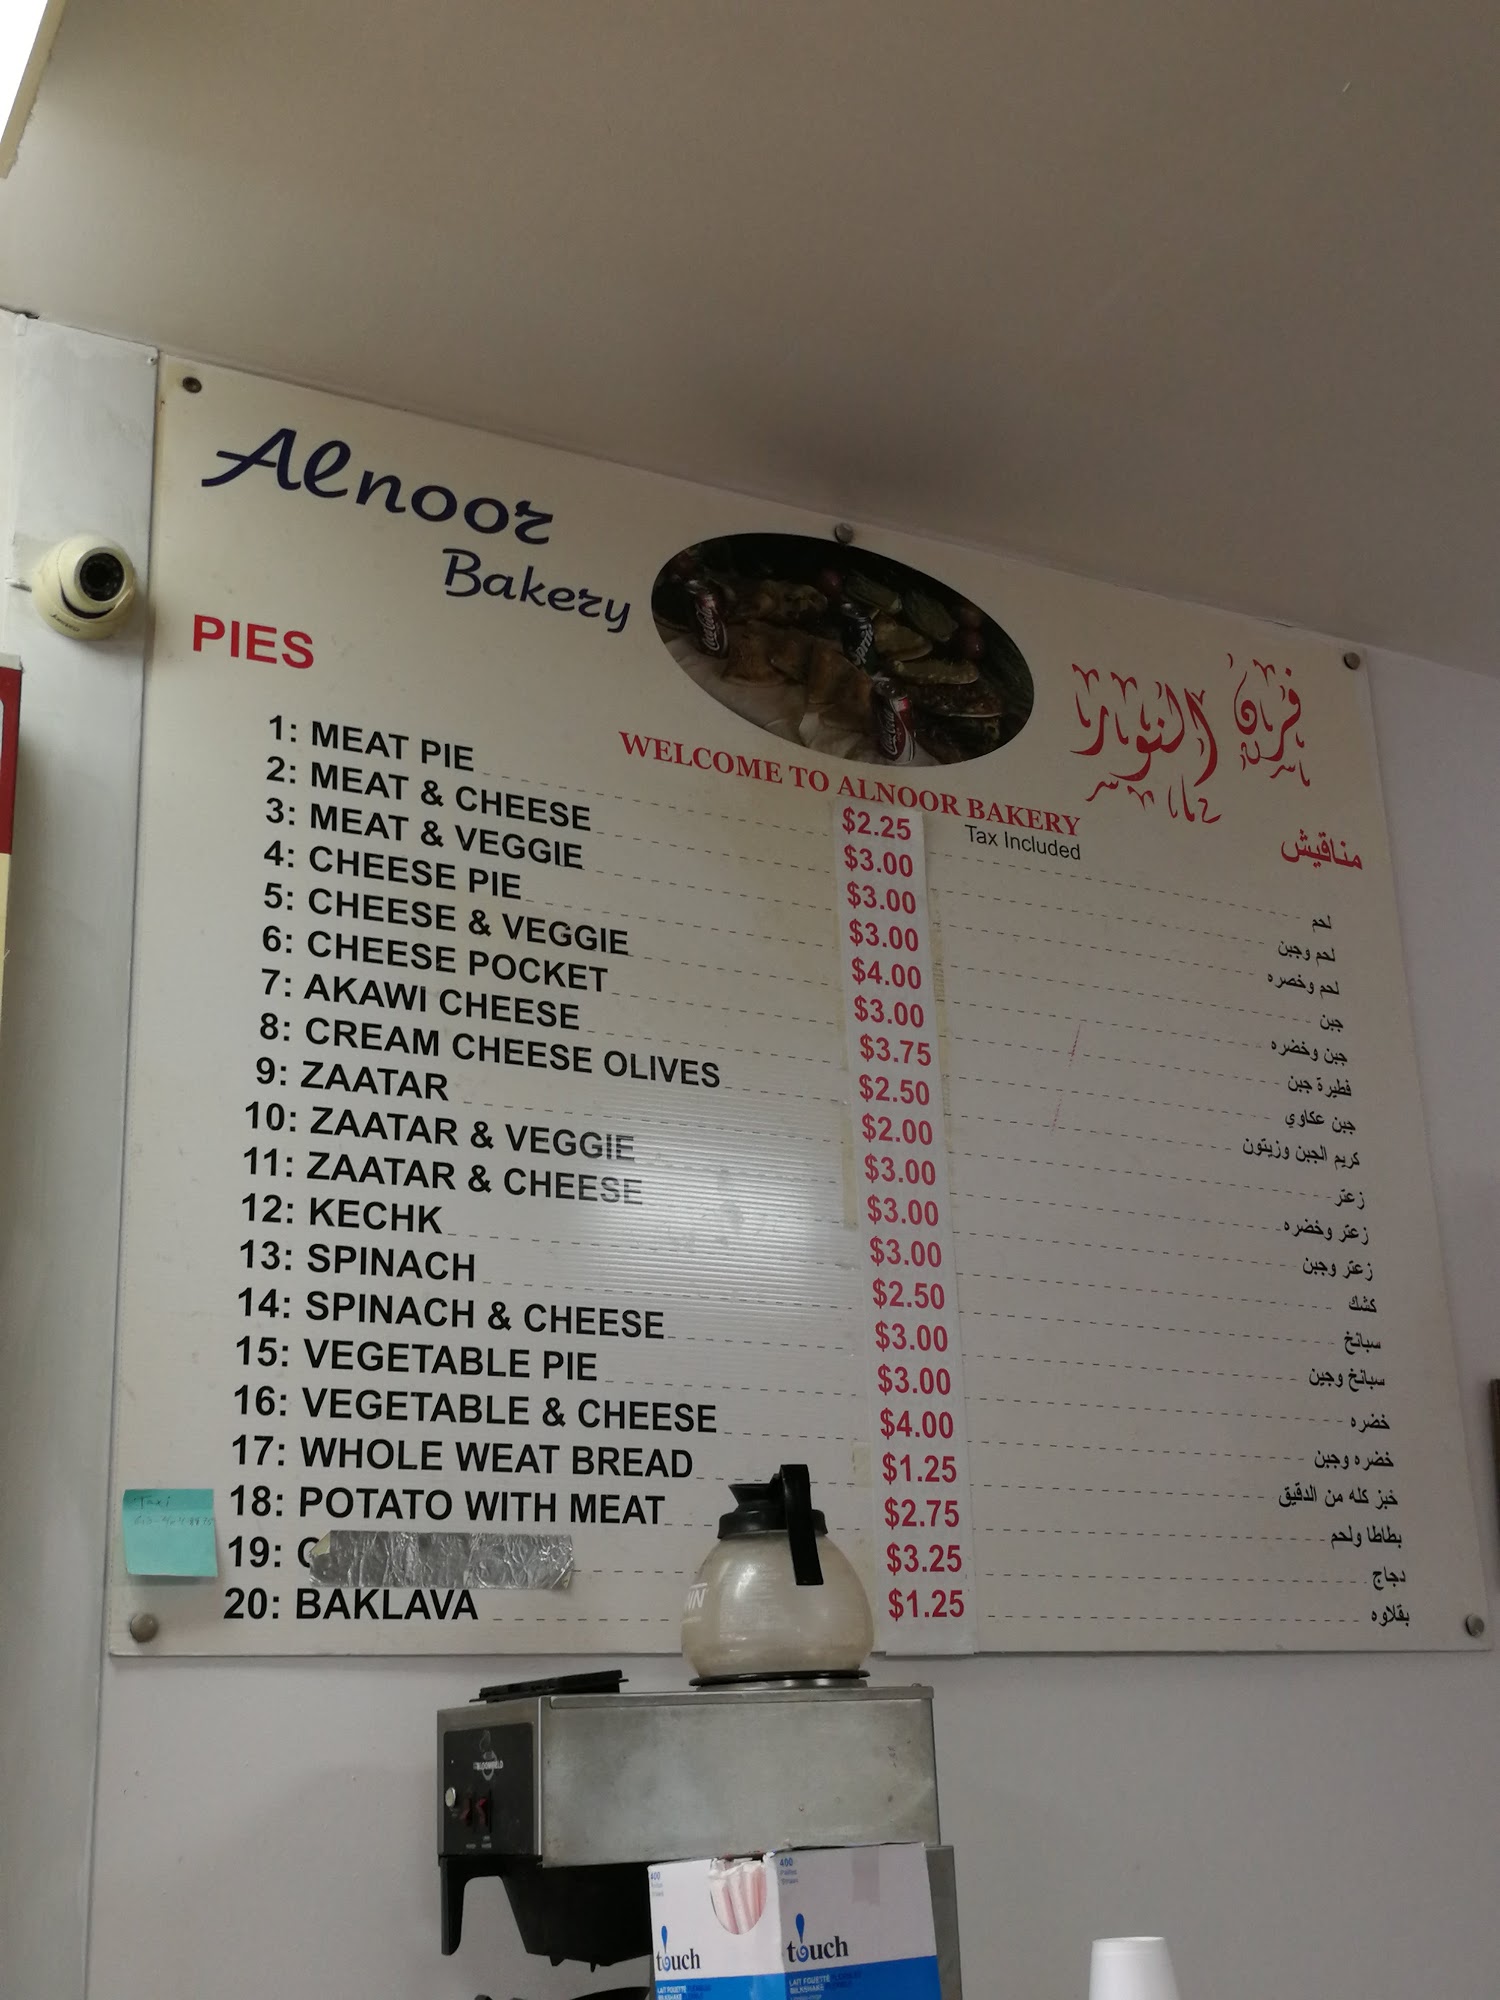 Alnoor
Bakery
PIES
فرن النور
WELCOME TO ALNOOR BAKERY
Tax Included
مناقيش
1: MEAT PIE $2.25 لحم
2: MEAT & CHEESE $3.00 لحم وجبن
3: MEAT & VEGGIE $3.00 لحم وخصره
4: CHEESE PIE $3.00 جبن
5: CHEESE & VEGGIE $4.00 جبن وخضره
6: CHEESE POCKET $3.00 فطيرة جبن
7: AKAWI CHEESE $3.75 جبن عكاوي
8: CREAM CHEESE OLIVES $2.50 كريم الجبن وزيتون
9: ZAATAR $2.00 زعتر
10: ZAATAR & VEGGIE $3.00 زعتر وخضره
11: ZAATAR & CHEESE $3.00 زعتر وجبن
12: KECHK $3.00 كشك
13: SPINACH $2.50 سبانخ
14: SPINACH & CHEESE $3.00 سبانخ وجبن
15: VEGETABLE PIE $3.00 خضره
16: VEGETABLE & CHEESE $4.00 خضره وجبن
17: WHOLE WEAT BREAD $1.25 خبز كله من الدقيق
18: POTATO WITH MEAT $2.75 بطاطا ولحم
19: C $3.25 دجاج
20: BAKLAVA $1.25 بقلاوه
Taxi
Coca-Cola
Sprite
Coca-Cola
BLOOMFIELD
400
400
touch
touch
LAIT FOUETTÉ
MILKSHAKE
LAIT FOUETTÉ
MILKSHAKE